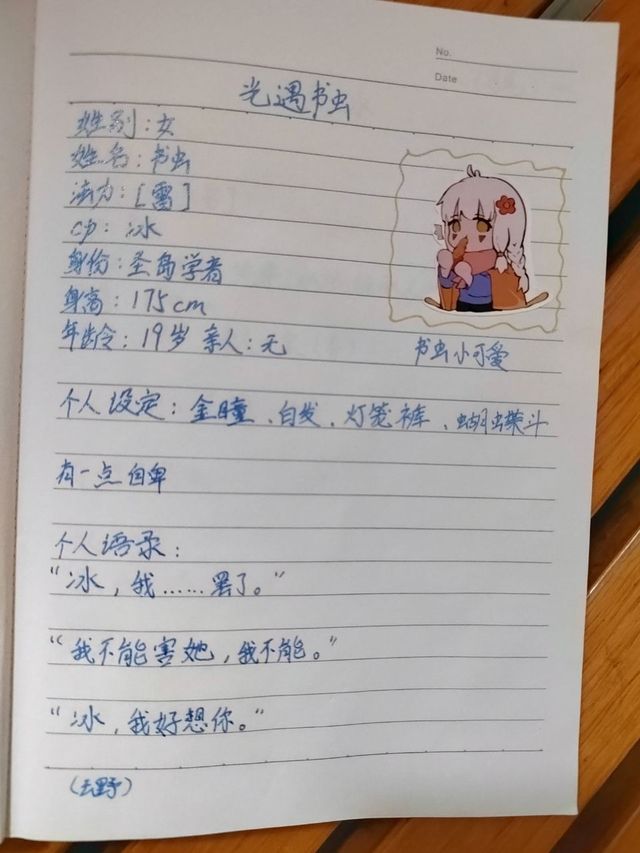 No.
Date
光遇书虫
姓别:女
姓名:书虫
法力:[雷]
cp:冰
身份:圣岛学者
身高:175cm
年龄:19岁 亲人:无
书虫小可爱
个人设定:金瞳、白发、灯笼裤、蝴蝶斗
有一点自卑
个人语录:
“冰,我……罢了。”
“我不能害她,我不能。”
“冰,我好想你。”
(云野)